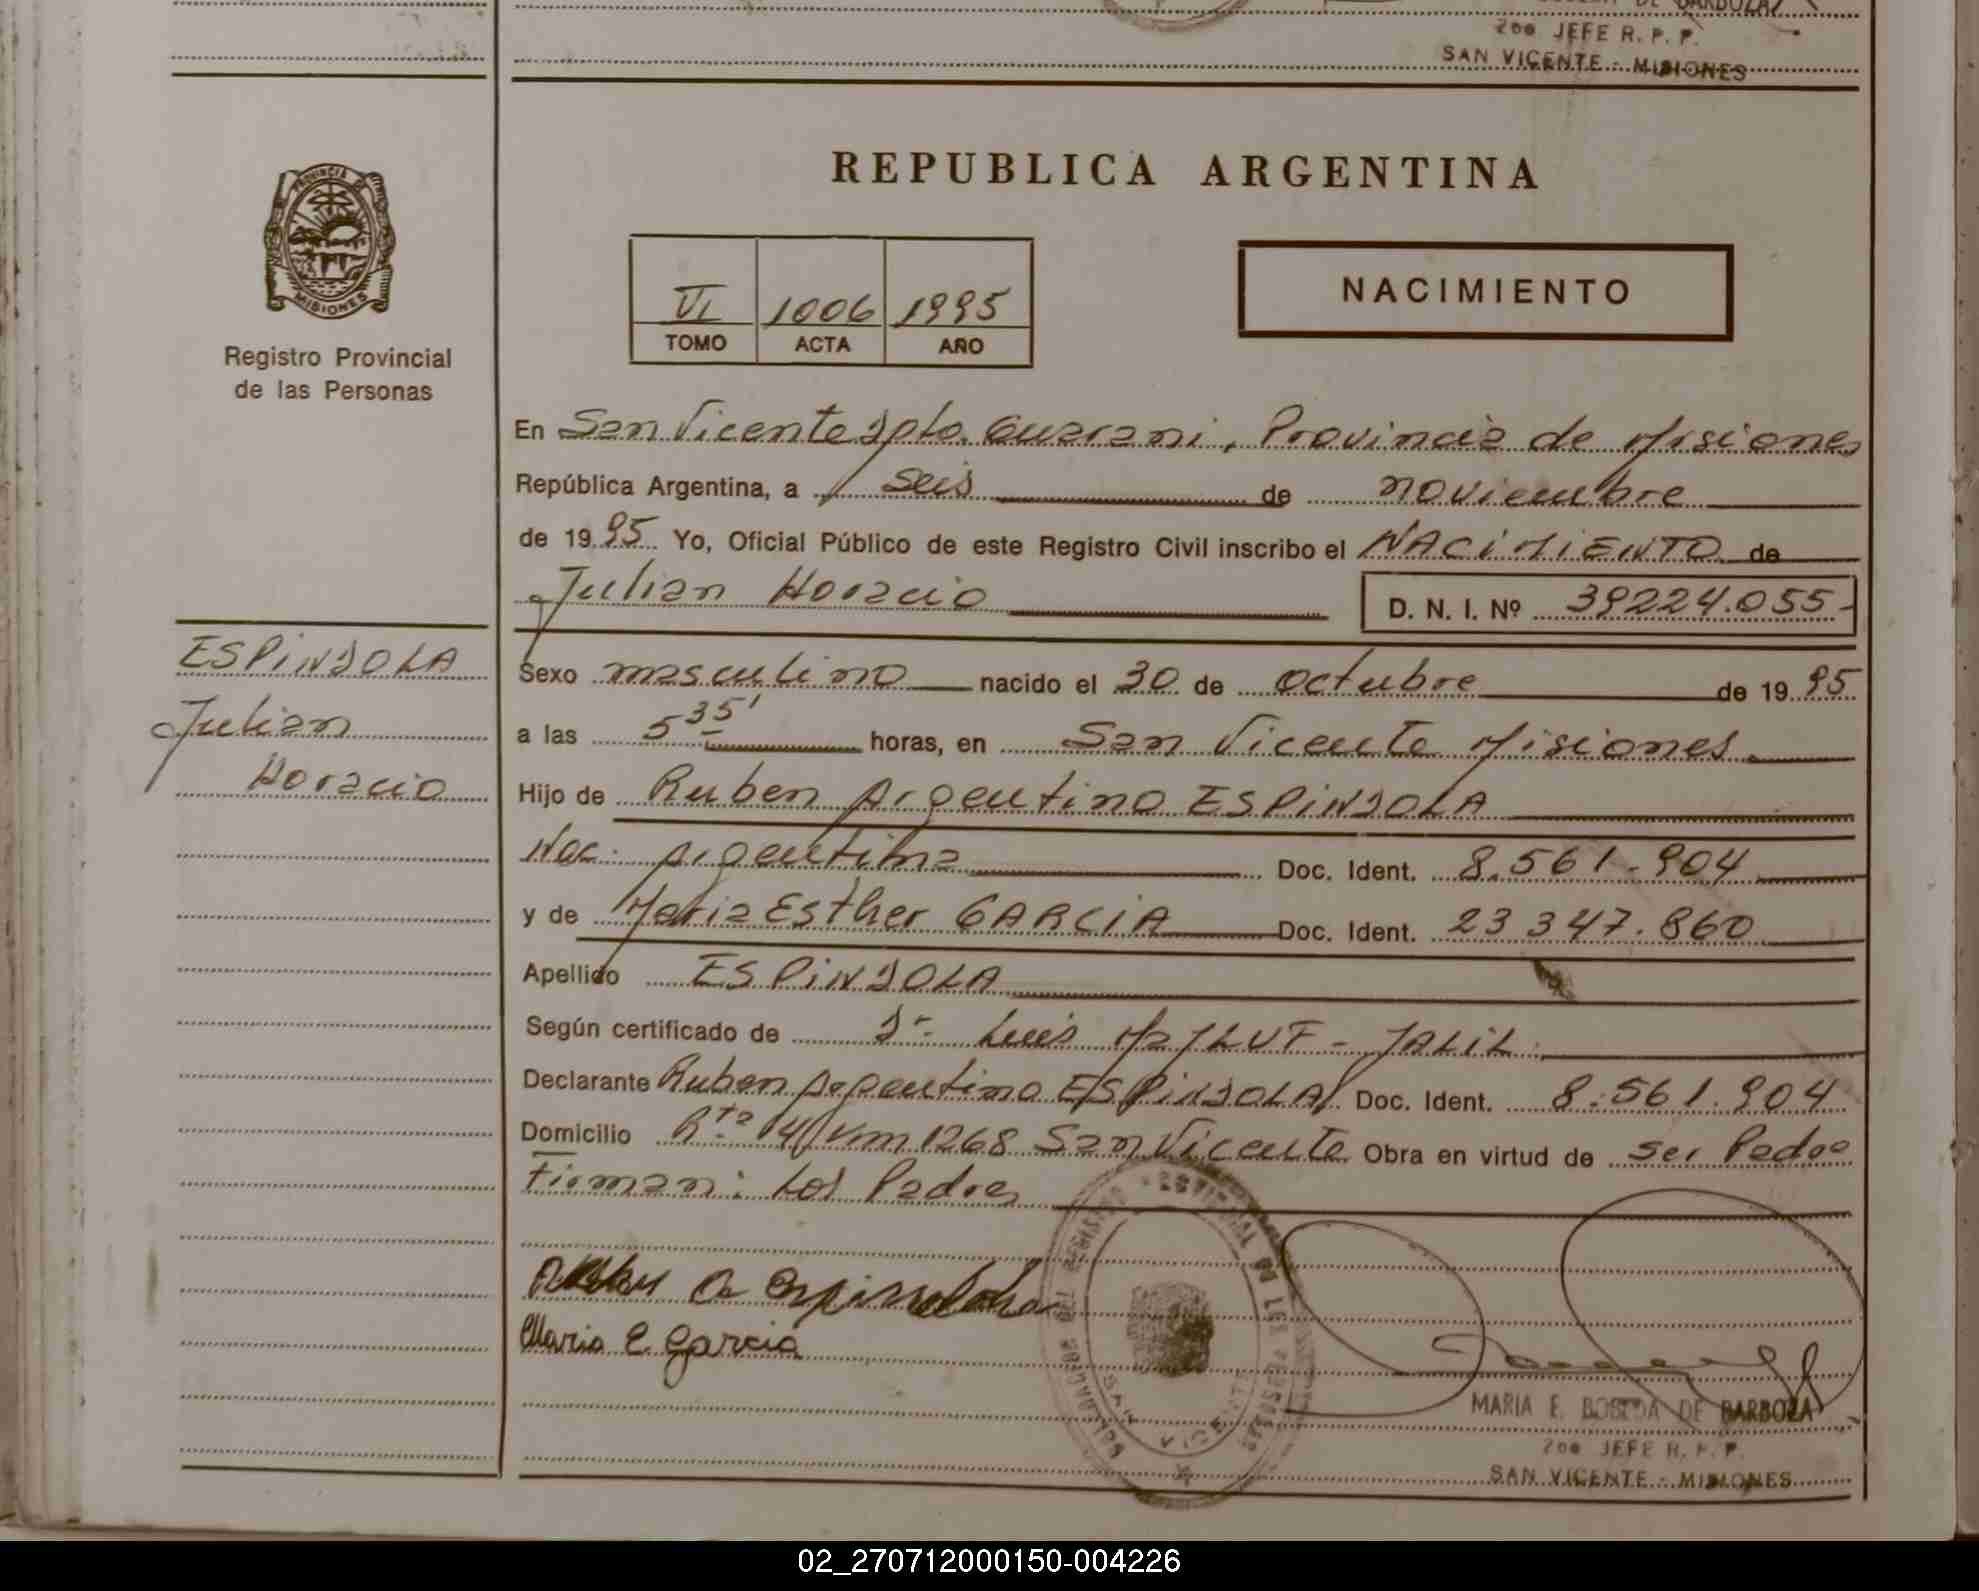 DE BARBOZA
2do JEFE R. P. P.
SAN VICENTE - MISIONES
REPUBLICA ARGENTINA
PROVINCIA DE
MISIONES
Registro Provincial
de las Personas
VI 1006 1995
TOMO ACTA AÑO
NACIMIENTO
En San Vicente Dpto. Guarani, Provincia de Misiones
República Argentina, a seis de noviembre
de 1995 Yo, Oficial Público de este Registro Civil inscribo el NACIMIENTO de
Julian Horacio D. N. I. Nº 39224.055-
ESPINDOLA
Julian
Horacio
Sexo masculino nacido el 30 de octubre de 1995
a las 5 35' horas, en San Vicente Misiones
Hijo de Ruben Argentino ESPINDOLA
Nac. argentina Doc. Ident. 8.561.904
y de Maria Esther GARCIA Doc. Ident. 23 347.860
Apellido ESPINDOLA
Según certificado de Dr. Luis MAJLUF - JALIL
Declarante Ruben Argentino ESPINDOLA Doc. Ident. 8.561.904
Domicilio Rta 14 Km 1268 San Vicente Obra en virtud de ser Padre
Firman: Los Padres
A Espindola
Maria E. Garcia
REGISTRO PROVINCIAL DE LAS PERSONAS
SAN VICENTE
MARIA E. BOBEDA DE BARBOZA
2do JEFE R. P. P.
SAN VICENTE - MISIONES
02_270712000150-004226